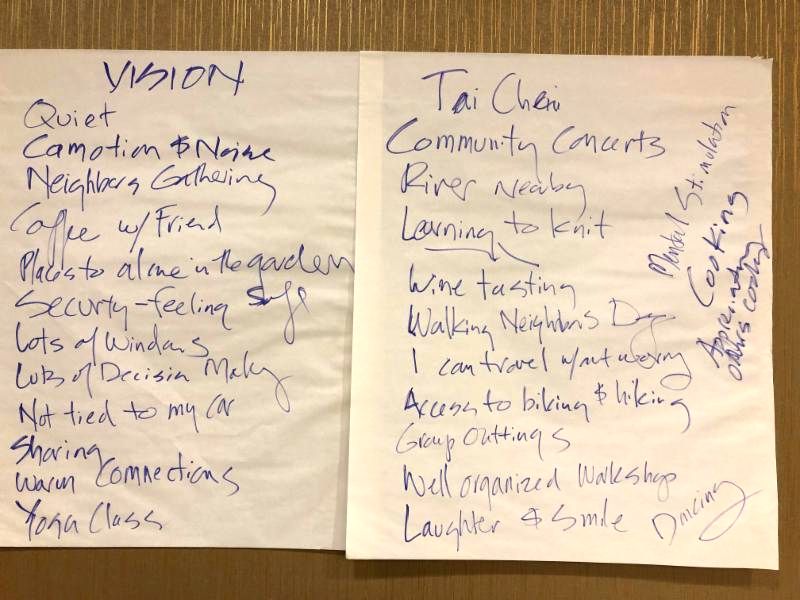 VISION
Quiet
Camotion & Noise
Neighbors Gathering
Coffee w/ Friend
Places to alone in the garden
Security-feeling Safe
Lots of Windows
Lots of Decision Making
Not tied to my car
Sharing
Warm Connections
Yoga Class
Tai Chai
Community Concerts
River Nearby
Learning to knit
Wine tasting
Walking Neighbors Dog
I can travel w/out worry
Access to biking & hiking
Group Outtings
Well organized Workshop
Laughter & Smile
Dancing
Mental Stimulation
Cooking
Appreciating
others cooking